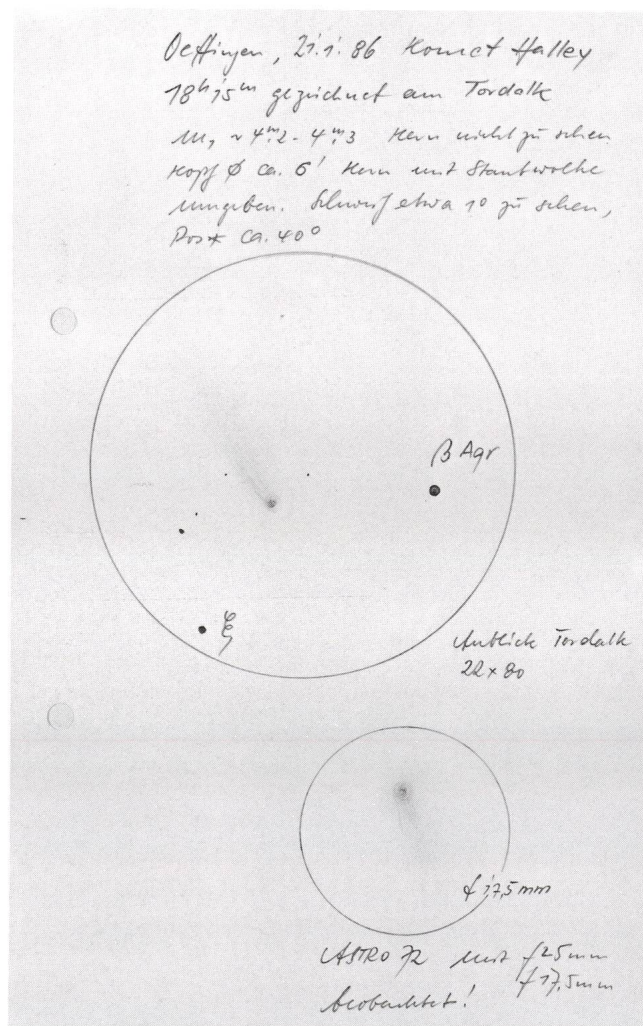 Oeffingen, 21.1.86 Komet Halley
18ʰ15ᵐ gezeichnet am Tordalk
m₁ ~ 4ᵐ.2 - 4ᵐ.3 Kern nicht zu sehen
Kopf ∅ ca. 6' Kern mit Staubwolke
umgeben. Schweif etwa 1° zu sehen,
ca. 40°
β Aqr
ξ
Anblick Tordalk
22 x 80
f 17,5mm
ASTRO 72 mit f 25mm
f 17,5mm
beobachtet!